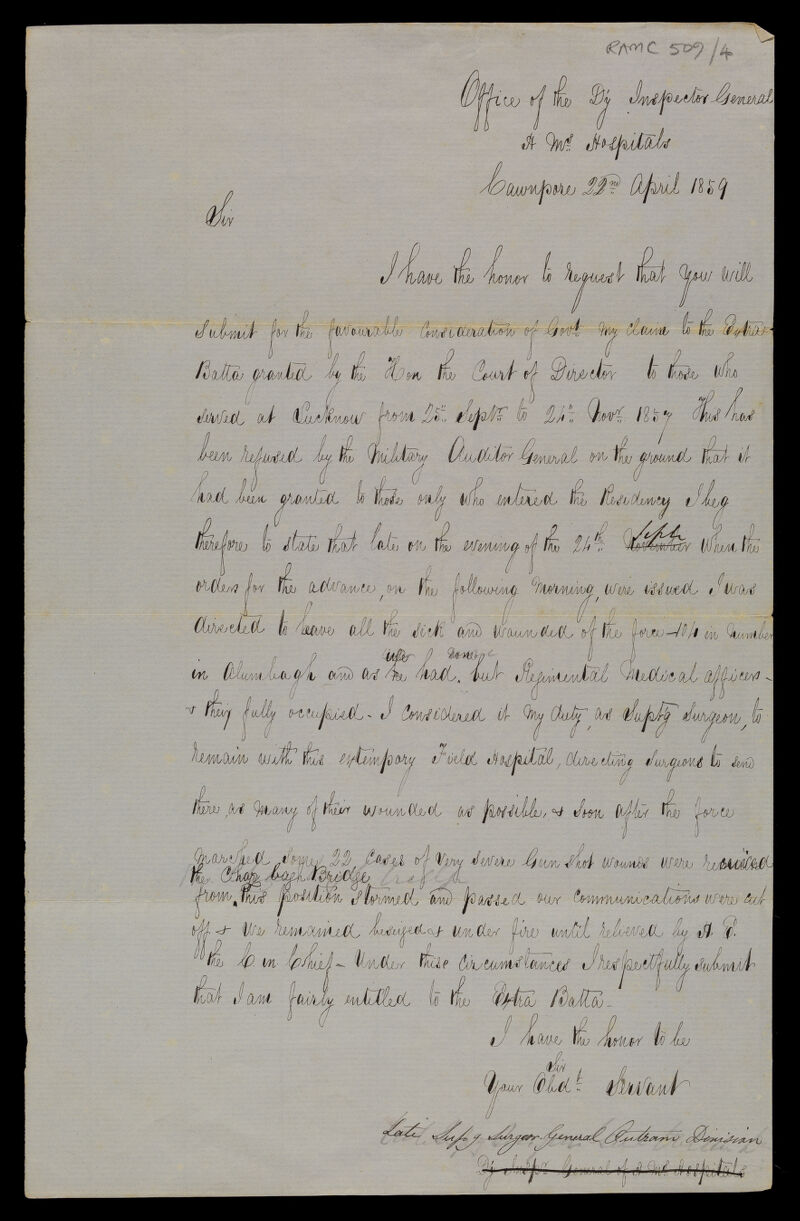 RAMC 509/4
Office of the Dy Inspector General
H Ms Hospitals
Cawnpore 22nd April 1859
Sir
I have the honor to request that you will
submit for the favourable consideration of Govt my claim to the Extra
Batta granted by the Hon the Court of Director to those who
served at Lucknow from 25th Septr to 24th Novr 1857 This has
been refused by the Military Auditor General on the ground that it
had been granted to those only who entered the Residency I beg
therefore to state that late on the evening of the 24th November Septr when the
orders for the advance, on the following morning, were issued I was
directed to leave all the sick and wounded of the force - 104 in number
in Alumbagh and as he had. but Regimental Medical officers -
& they fully occupied - I considered it my duty, as Suptg Surgeon, to
remain with this extempory Field Hospital, directing Surgeons to send
there, as many of their wounded as possible, & soon after the force
marched some 22 cases of very severe Gun shot wounds were received
the Char bagh Bridge
from, this position stormed and passed our communications were cut
off & we remained besieged & under fire until relieved by
the C in Chief - Under these circumstances I respectfully submit
that I am fairly entitled to the Extra Batta -
I have the honor to be
Sir
Your Obdt Servant
Late Supg Surgeon General Outram Division
Dy Inspr General of H Ms Hospitals